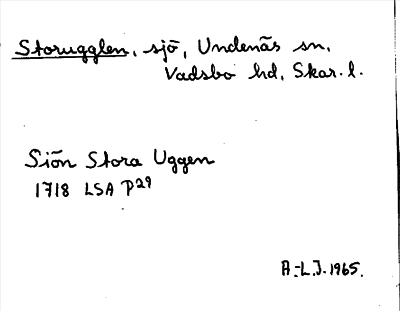 Storugglen, sjö, Undenäs sn,
Vadsbo hd, Skar. l.
Siön Stora Uggen
1718 LSA P29
A.-L.J. 1965.